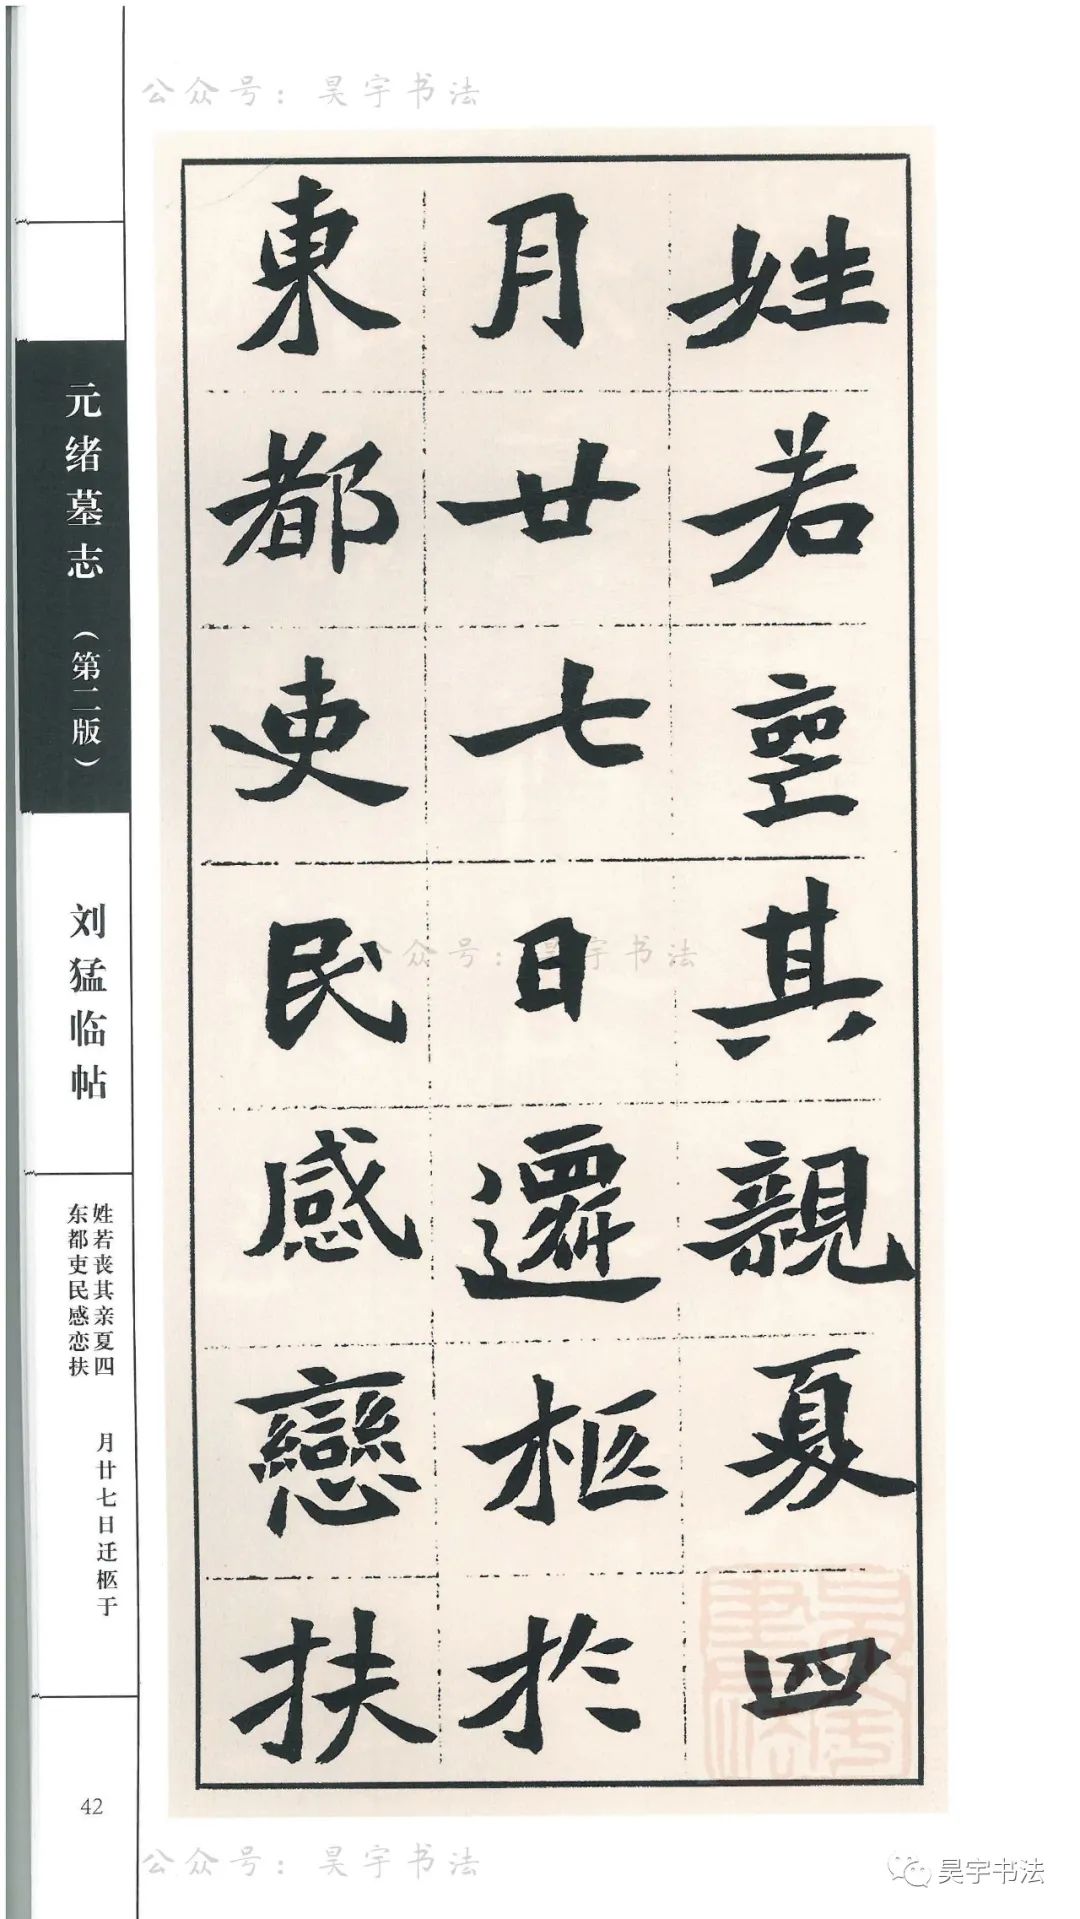 公众号：昊宇书法
姓若䘮其親夏四
月廿七日遷柩於
東都吏民感戀扶
公众号：昊宇书法
元绪墓志（第二版）
刘猛临帖
姓若丧其亲夏四
月廿七日迁柩于
东都吏民感恋扶
42
公众号：昊宇书法
昊宇书法